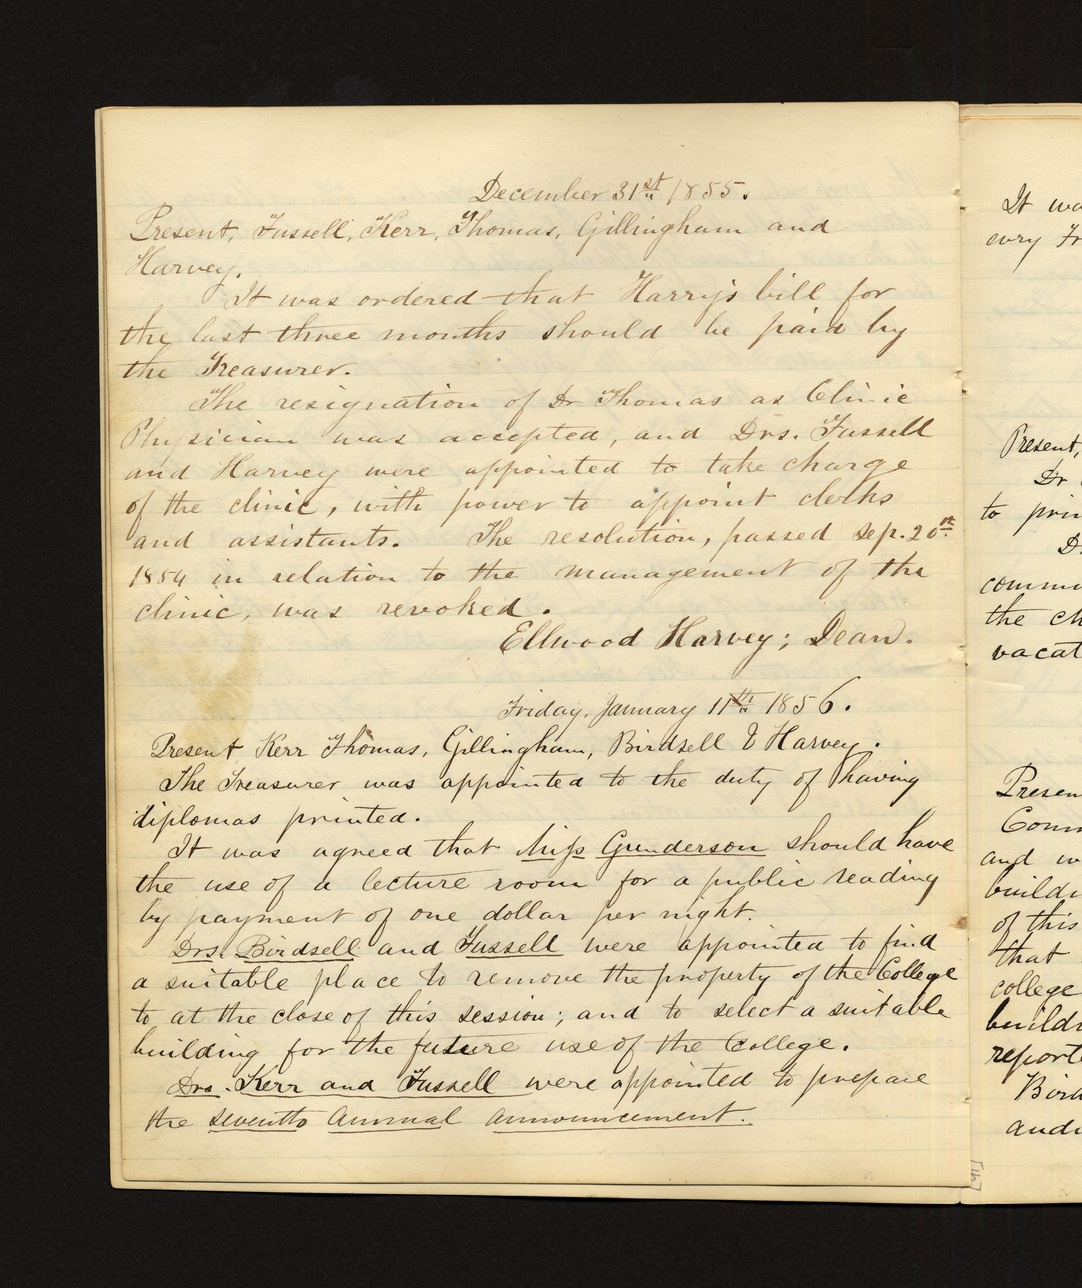 December 31st 1855.
Present, Fussell, Kerr, Thomas, Gillingham and
Harvey.
It was ordered that Harry's bill for
the last three months should be paid by
the Treasurer.
The resignation of Dr Thomas as Clinic
Physician was accepted, and Drs. Fussell
and Harvey were appointed to take charge
of the clinic, with power to appoint clerks
and assistants. The resolution, passed Sep. 20th
1854 in relation to the management of the
clinic, was revoked.
Ellwood Harvey; Dean.
Friday, January 11th 1856.
Present Kerr Thomas, Gillingham, Birdsell & Harvey.
The Treasurer was appointed to the duty of having
diplomas printed.
It was agreed that Miss Gunderson should have
the use of a lecture room for a public reading
by payment of one dollar per night.
Drs. Birdsell and Fussell were appointed to find
a suitable place to remove the property of the College
to at the close of this session; and to select a suitable
building for the future use of the College.
Drs. Kerr and Fussell were appointed to prepare
the seventh Annual announcement.
It
Present,
Dr
to
the
of this
that
college